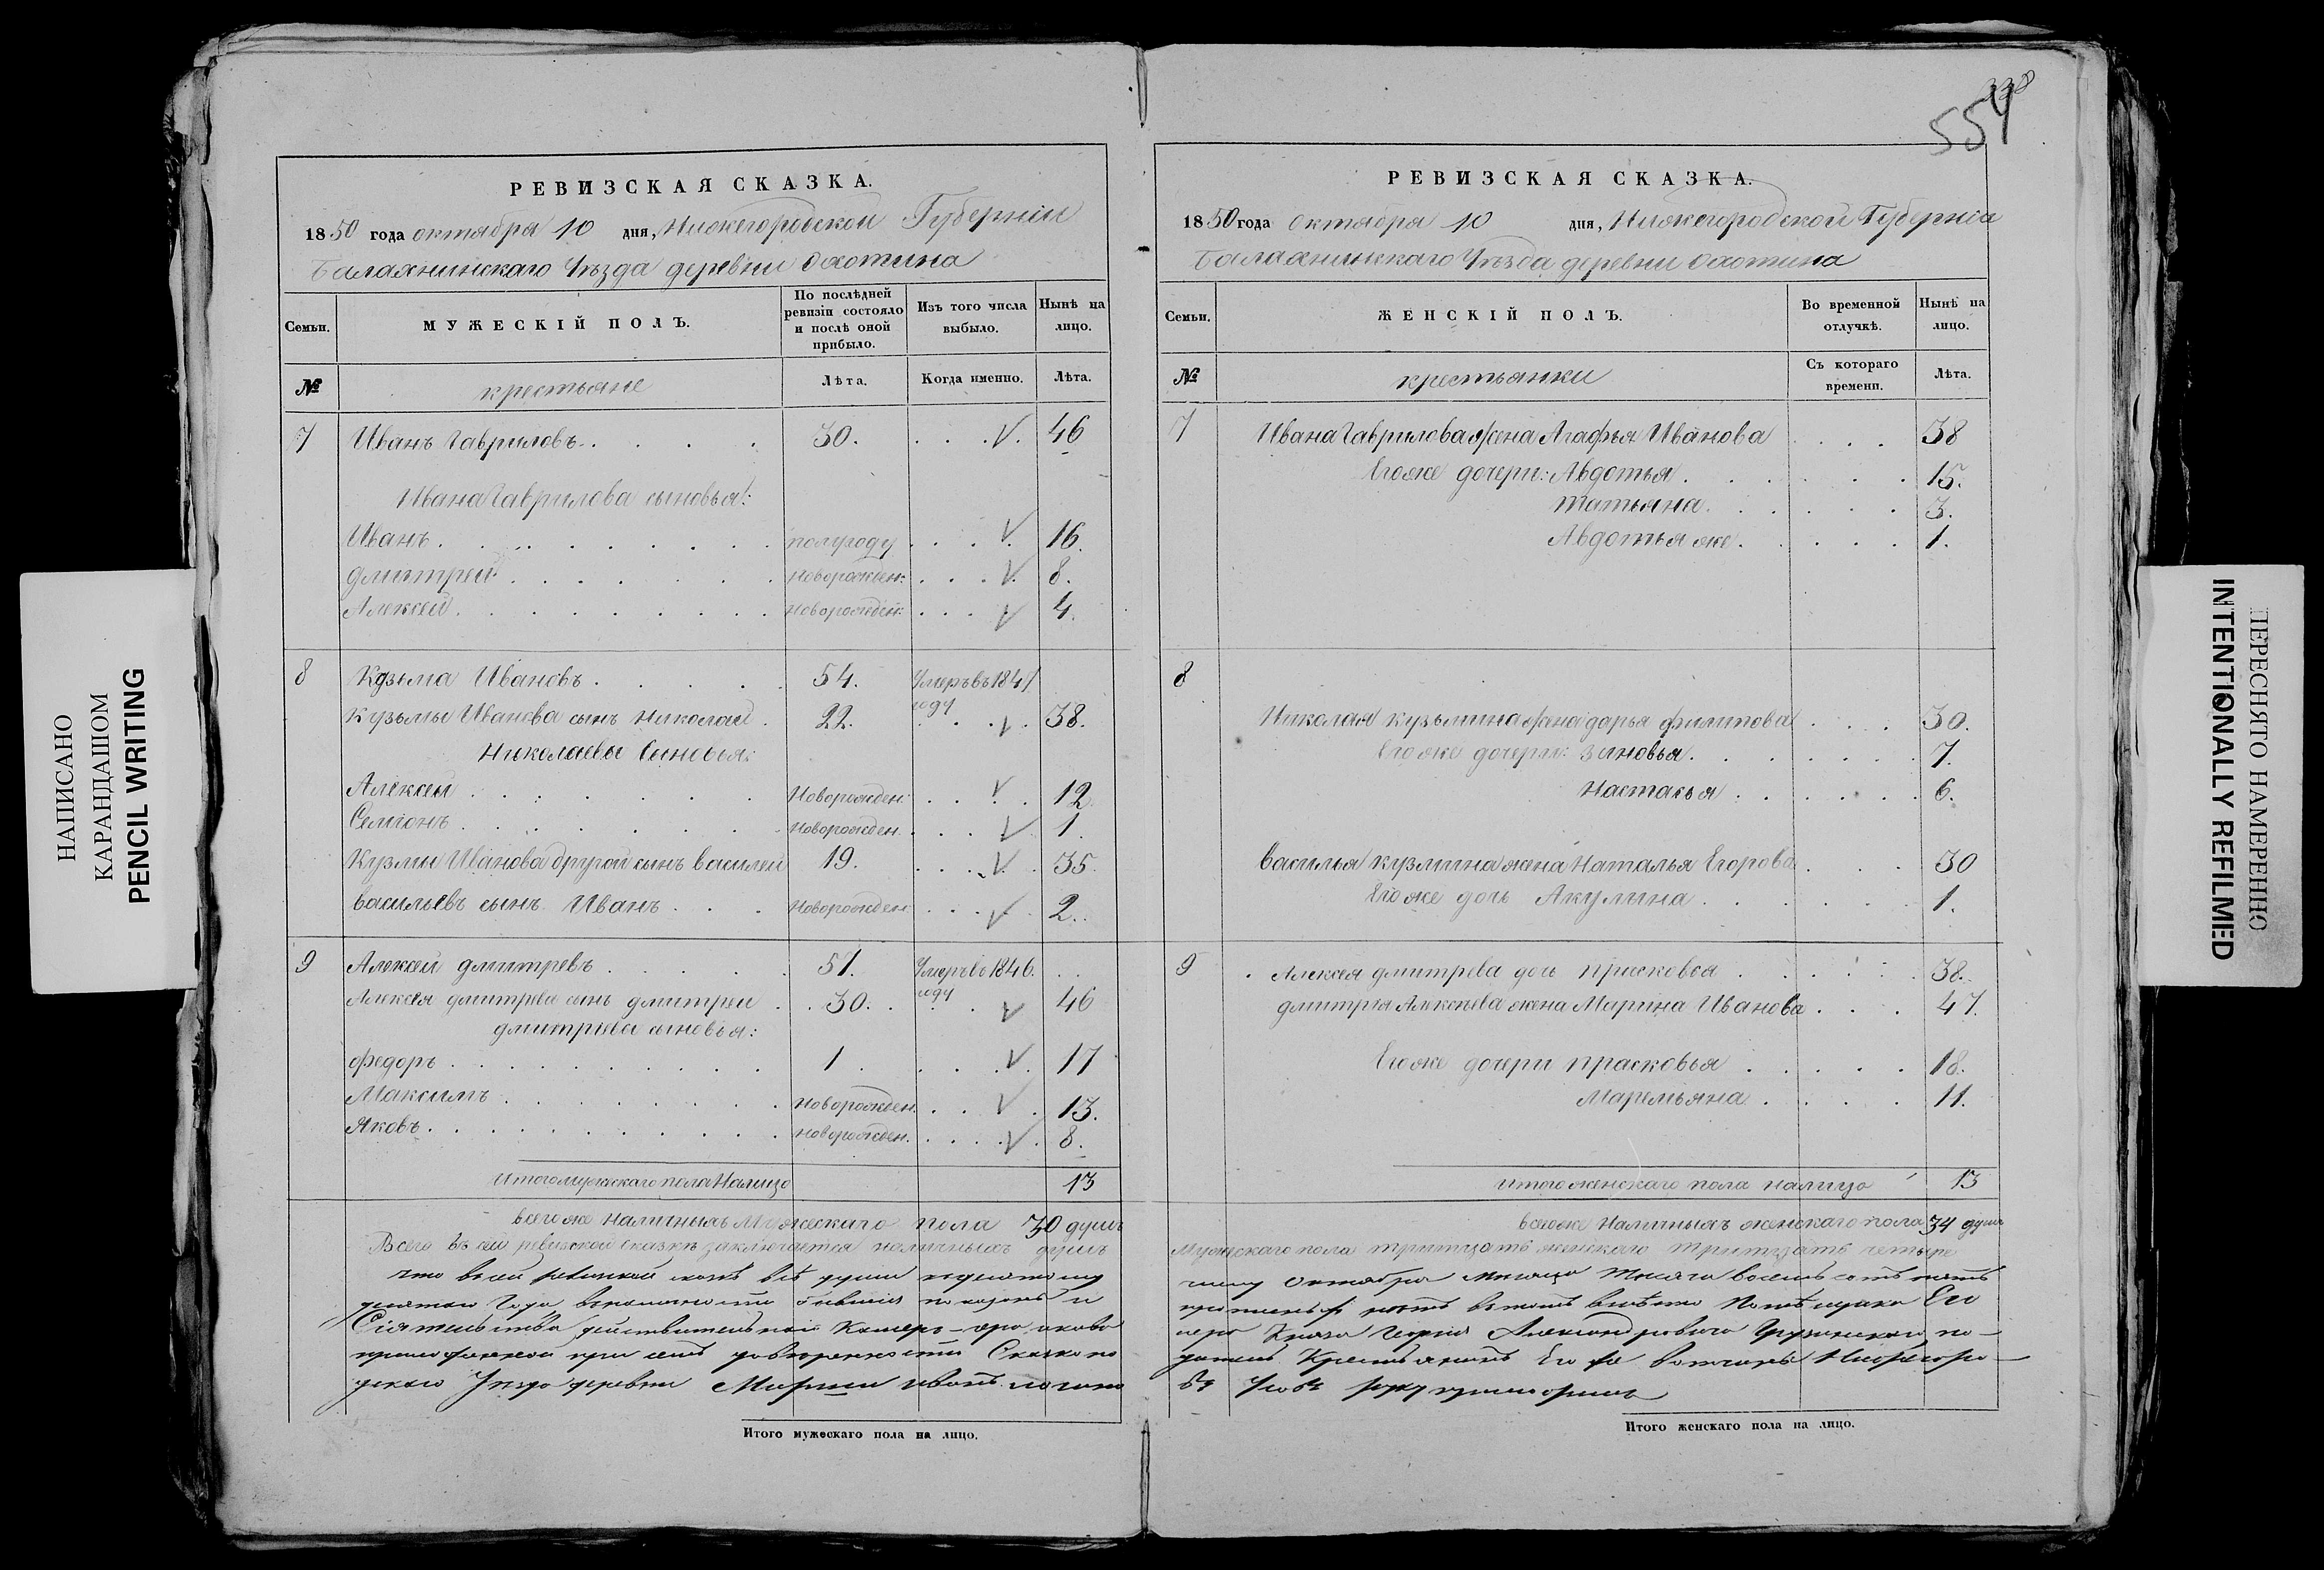 338
554
РЕВИЗСКАЯ СКАЗКА.
1850 года октября 10 дня, Нижегородской Губернiи
Балахнинскаго Уѣзда деревни Охотина
Семьи.
МУЖЕСКIЙ ПОЛЪ.
По послѣдней
ревизiи состояло
и послѣ оной
прибыло.
Изъ того числа
выбыло.
Нынѣ на
лицо.
№
крестьяне
Лѣта.
Когда именно.
Лѣта.
7 Иванъ Гавриловъ 30. 46
Ивана Гаврилова сыновья:
Иванъ полугоду 16.
Дмитрей новорожден: 8.
Алексей новорожден: 4.
8 Кузьма Ивановъ 54. Умеръ въ 1847
году
Кузьмы Иванова сынъ Николай 22. 38.
Николаевы Сыновья:
Алексей Новорожден: 12.
Семіонъ Новорожден. 1.
Кузмы Иванова другой сынъ Василей 19. 35.
Васильевъ сынъ Иванъ Новорожден: 2.
9 Алексей Дмитревъ 51. Умеръ въ 1846.
году
Алексея Дмитрева сынъ Дмитреи 30. 46
Дмитріевы сыновья:
Федоръ 1 17
Максимъ Новорожден. 13.
Яковъ новорожден. 8.
Итого мужескаго пола Налицо 13
Всегоже наличныхъ Мужескаго пола 30 душъ
Всего въ сей ревизской сказкѣ заключается наличныхъ душъ
что въ сей ревизской
Сіятельства действительнаго Камер-
при семъ доверенности
Уезда деревни
Итого мужескаго пола на лицо.
РЕВИЗСКАЯ СКАЗКА.
1850 года октября 10 дня, Нижегородской Губернiи
Балахнинскаго Уѣзда деревни Охотина
Семьи.
ЖЕНСКIЙ ПОЛЪ.
Во временной
отлучкѣ.
Нынѣ на
лицо.
№
крестьянки
Съ котораго
времени.
Лѣта.
7 Ивана Гаврилова жена Агафья Иванова 38
Егоже дочери: Авдотья 15.
Татьяна 3.
Авдотья же 1.
8
Николая Кузьмина жена Дарья Филипова 30.
Егоже дочери: Зиновья 7.
Настасья 6.
Василья Кузмина жена Наталья Егорова 30
Егоже дочь Акулина 1.
9 Алексея Дмитрева дочь Прасковья 38.
Дмитрія Алексѣева жена Марина Иванова 47.
Егоже дочери Прасковья 18.
Маремьяна 11.
Итого женскаго пола налицо 13
Всегоже Наличныхъ женскаго пола 34 душъ
Мужескаго пола тритцать женскаго тритцать четыре
Октября месяца тысяча восемь сотъ пятъ
Князя Георгія Александровича Грузинскаго
руку приложилъ
Итого женскаго пола на лицо.
НАПИСАНО
КАРАНДАШОМ
PENCIL WRITING
ПЕРЕСНЯТО НАМЕРЕННО
INTENTIONALLY REFILMED